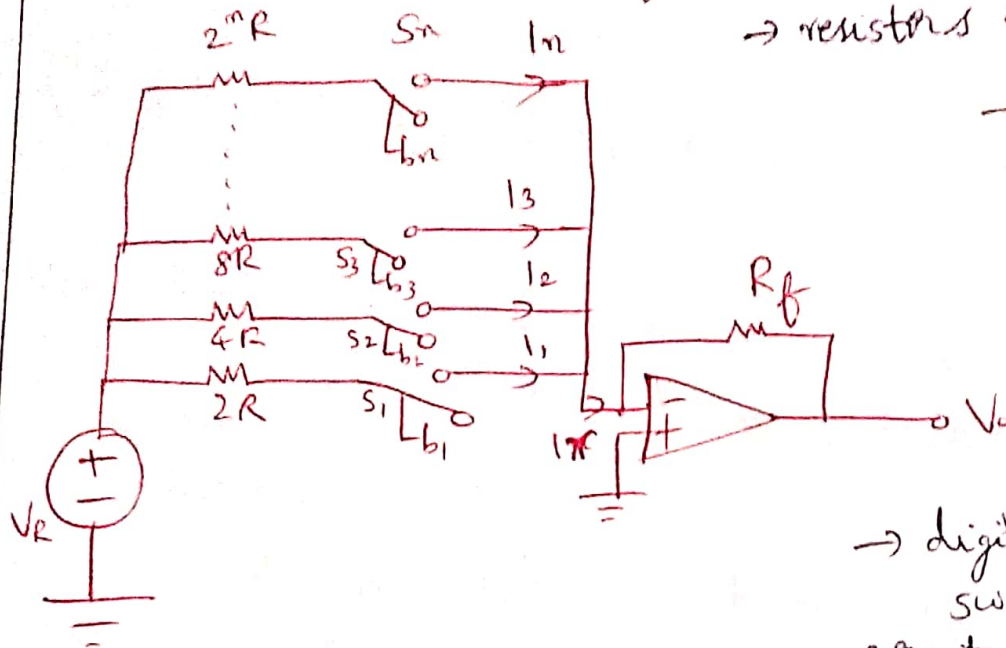 2ⁿR Sn In → resistors
bn
I3
8R S3 b3
I2
Rf
4R S2 b2
I1
2R S1 b1
+
-
VR
-
+
→ digi
sw